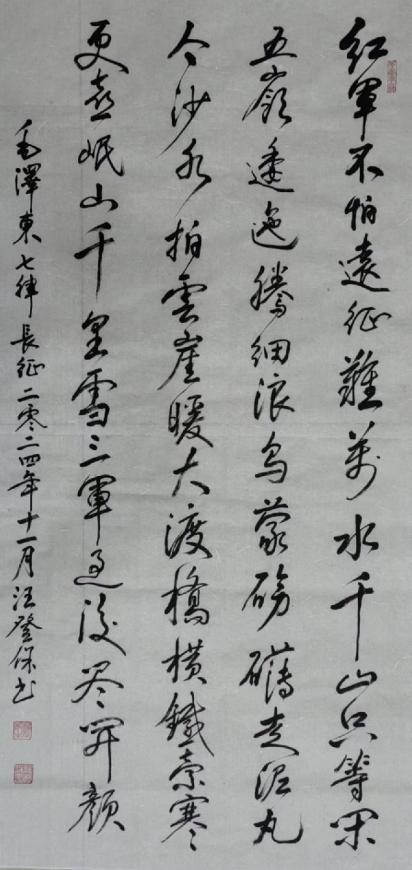 红軍不怕遠征難萬水千山只等闲
五嶺逶迤騰细浪乌蒙磅礴走泥丸
金沙水拍雲崖暖大渡橋橫鐵索寒
更喜岷山千里雪三軍过後尽开颜
毛澤東七律長征二零二四年十一月汪登保书